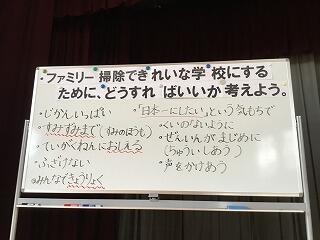 ・ファミリー掃除できれいな学校にする
ために、どうすればいいか考えよう。
・じかんいっぱい
・すみずみまで(すみのほうも)
・ていがくねんにおしえる
・ふざけない
・みんなできょうりょく
・「日本一にしたい」という気もちで
・くいのないように
・ぜんいんがまじめに
(ちゅういしあう)
・声をかけあう